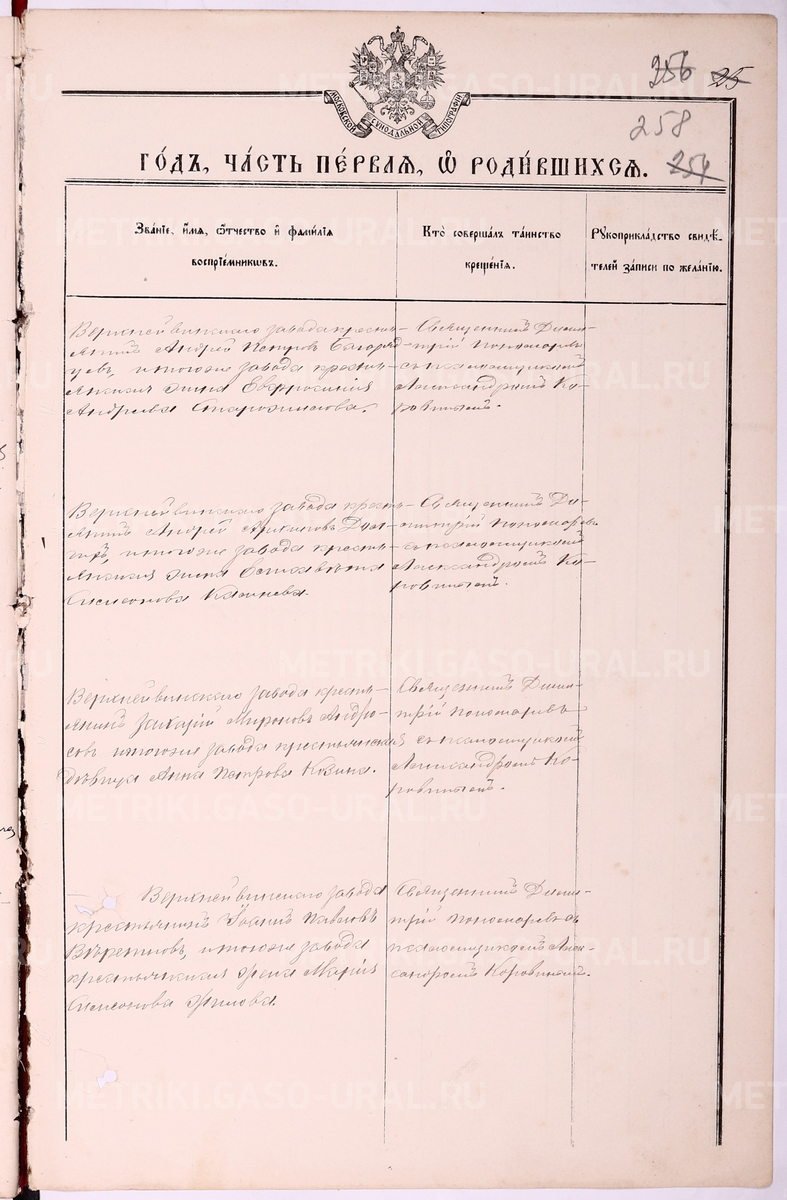 МОСКОВСКОЙ СѴНОДАЛЬНОЙ ТИПОГРАФІИ
256 25
258
254
ГО́ДЪ, ЧА́СТЬ ПЕ́РВАЯ, Ѽ РОДИ́ВШИХСЯ.
Зва́ніе, и҆́мя, ѻ҆́тчество и҆ фами́лія
воспріе́мникѡвъ.
Кто̀ соверша́лъ та́инство
креще́нія.
Рꙋкоприкла́дство свидѣ́-
телей за́писи по жела́нію.
Верхнейвинскаго завода кресть-
янинъ Андрей Петровъ
цевъ, и тогоже завода кресть-
янская жена Евфросинія
Андреева Старожилова.
Священникъ Дими-
трій Пономаревъ
съ псаломщикомъ
Александромъ Ко-
ровинымъ.
Верхнейвинскаго завода кресть-
янинъ Андрей
и тогоже завода кресть-
янская жена Елисавета
Симеонова
Священникъ Ди-
митрій Пономаревъ
съ псаломщикомъ
Александромъ Ко-
ровинымъ.
Верхнейвинскаго завода кресть-
янинъ Захарій Мироновъ Андро-
совъ и тогоже завода крестьянская
дѣвица Анна Петрова Козина.
Священникъ Дими-
трій Пономаревъ
съ псаломщикомъ
Александромъ Ко-
ровинымъ.
Верхнейвинскаго завода
крестьянинъ Іоаннъ Павловъ
и тогоже завода
крестьянская жена Марія
Симеонова
Священникъ Дими-
трій Пономаревъ съ
псаломщикомъ Алек-
сандромъ Коровинымъ.
METRIKI.GASO-URAL.RU